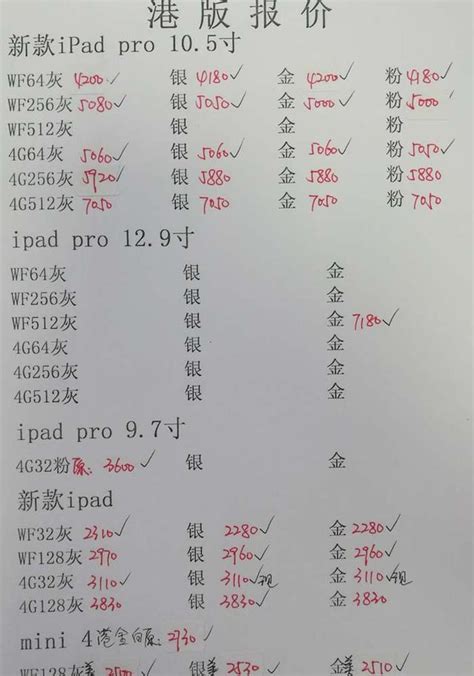 港版报价
新款iPad pro 10.5寸
WF64灰 4200✓ 银 4180✓ 金 4200✓ 粉 4180✓
WF256灰 5080✓ 银 5050✓ 金 5000✓ 粉 5000✓
WF512灰 银 金 粉
4G64灰 5060✓ 银 5060✓ 金 5060✓ 粉 5050✓
4G256灰 5920✓ 银 5880 金 5880 粉 5880
4G512灰 7050 银 7050 金 7050 粉 7050
ipad pro 12.9寸
WF64灰 银 金
WF256灰 银 金
WF512灰 银 金 7180✓
4G64灰 银 金
4G256灰 银 金
4G512灰 银 金
ipad pro 9.7寸
4G32粉 原: 3600 ✓ 银 金
新款ipad
WF32灰 2310✓ 银 2280✓ 金 2280✓
WF128灰 2970 银 2960✓ 金 2960✓
4G32灰 3110✓ 银 3110✓ 金 3110✓
4G128灰 3830 银 3830✓ 金 3830
mini 4 港金白原: 2730 ✓
WF128灰美 2500✓ 银美 2530 ✓ 金美 2510 ✓